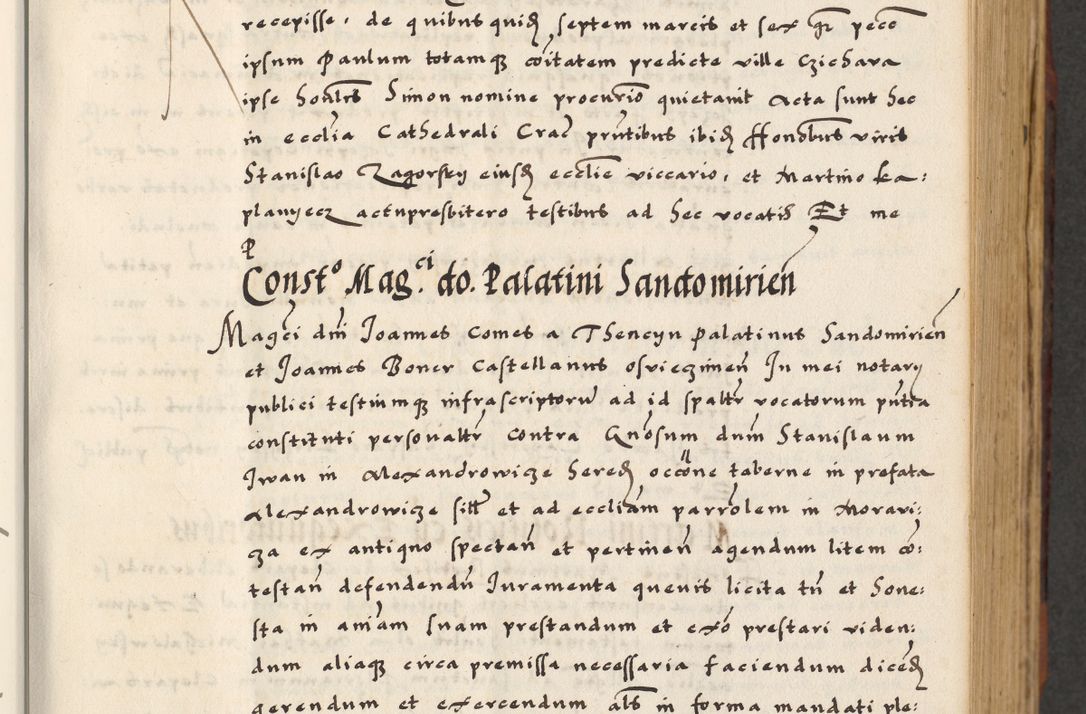 recepisse, de quibus quidȝ septem marcis et sex gr̄ pecc̄
ipsum Paulum totamqȝ cōītatem predicte ville Czichara
ipse honlis Simon nomine procurio quietavit Acta sunt hec
in ecclīa Cathedrali Crac̄ prntibus ibidȝ Honorbus viris
Stanislao Zagorsky eiusdȝ ecclie viccario, et Martino ka:
planyecz actupresbitero testibus ad hec vocatis Et me
P
Constº Mag.ci do. Palatini Sandomirien̄
Magci dnī Joannes Comes a Thencyn Palatinus Sandomirien̄
et Joannes Boner Castellanus osvieczimen̄ In mei notary
publici testiumqȝ infrascriptorū ad id spaltr vocatorum pn̄tia
constituti personaltr contra Gn̄osum dum̄ Stanislaum
Iwan in Alexandrowicze heredȝ occōne taberne in prefata
Alexandrowicze sitē et ad eccliam parrōlem in Moravi:
cza ex antiquo spectan̄ et pertinen̄ agendum litem cō:
testan̄ defendendn̄ Iuramenta quevis licita tn̄ et hone:
sta in aniam suam prestandum et exō prestari viden:
dum aliaqȝ circa premissa necessaria faciendum dicedȝ
gerendum et exercendum alts in forma mandati ple: